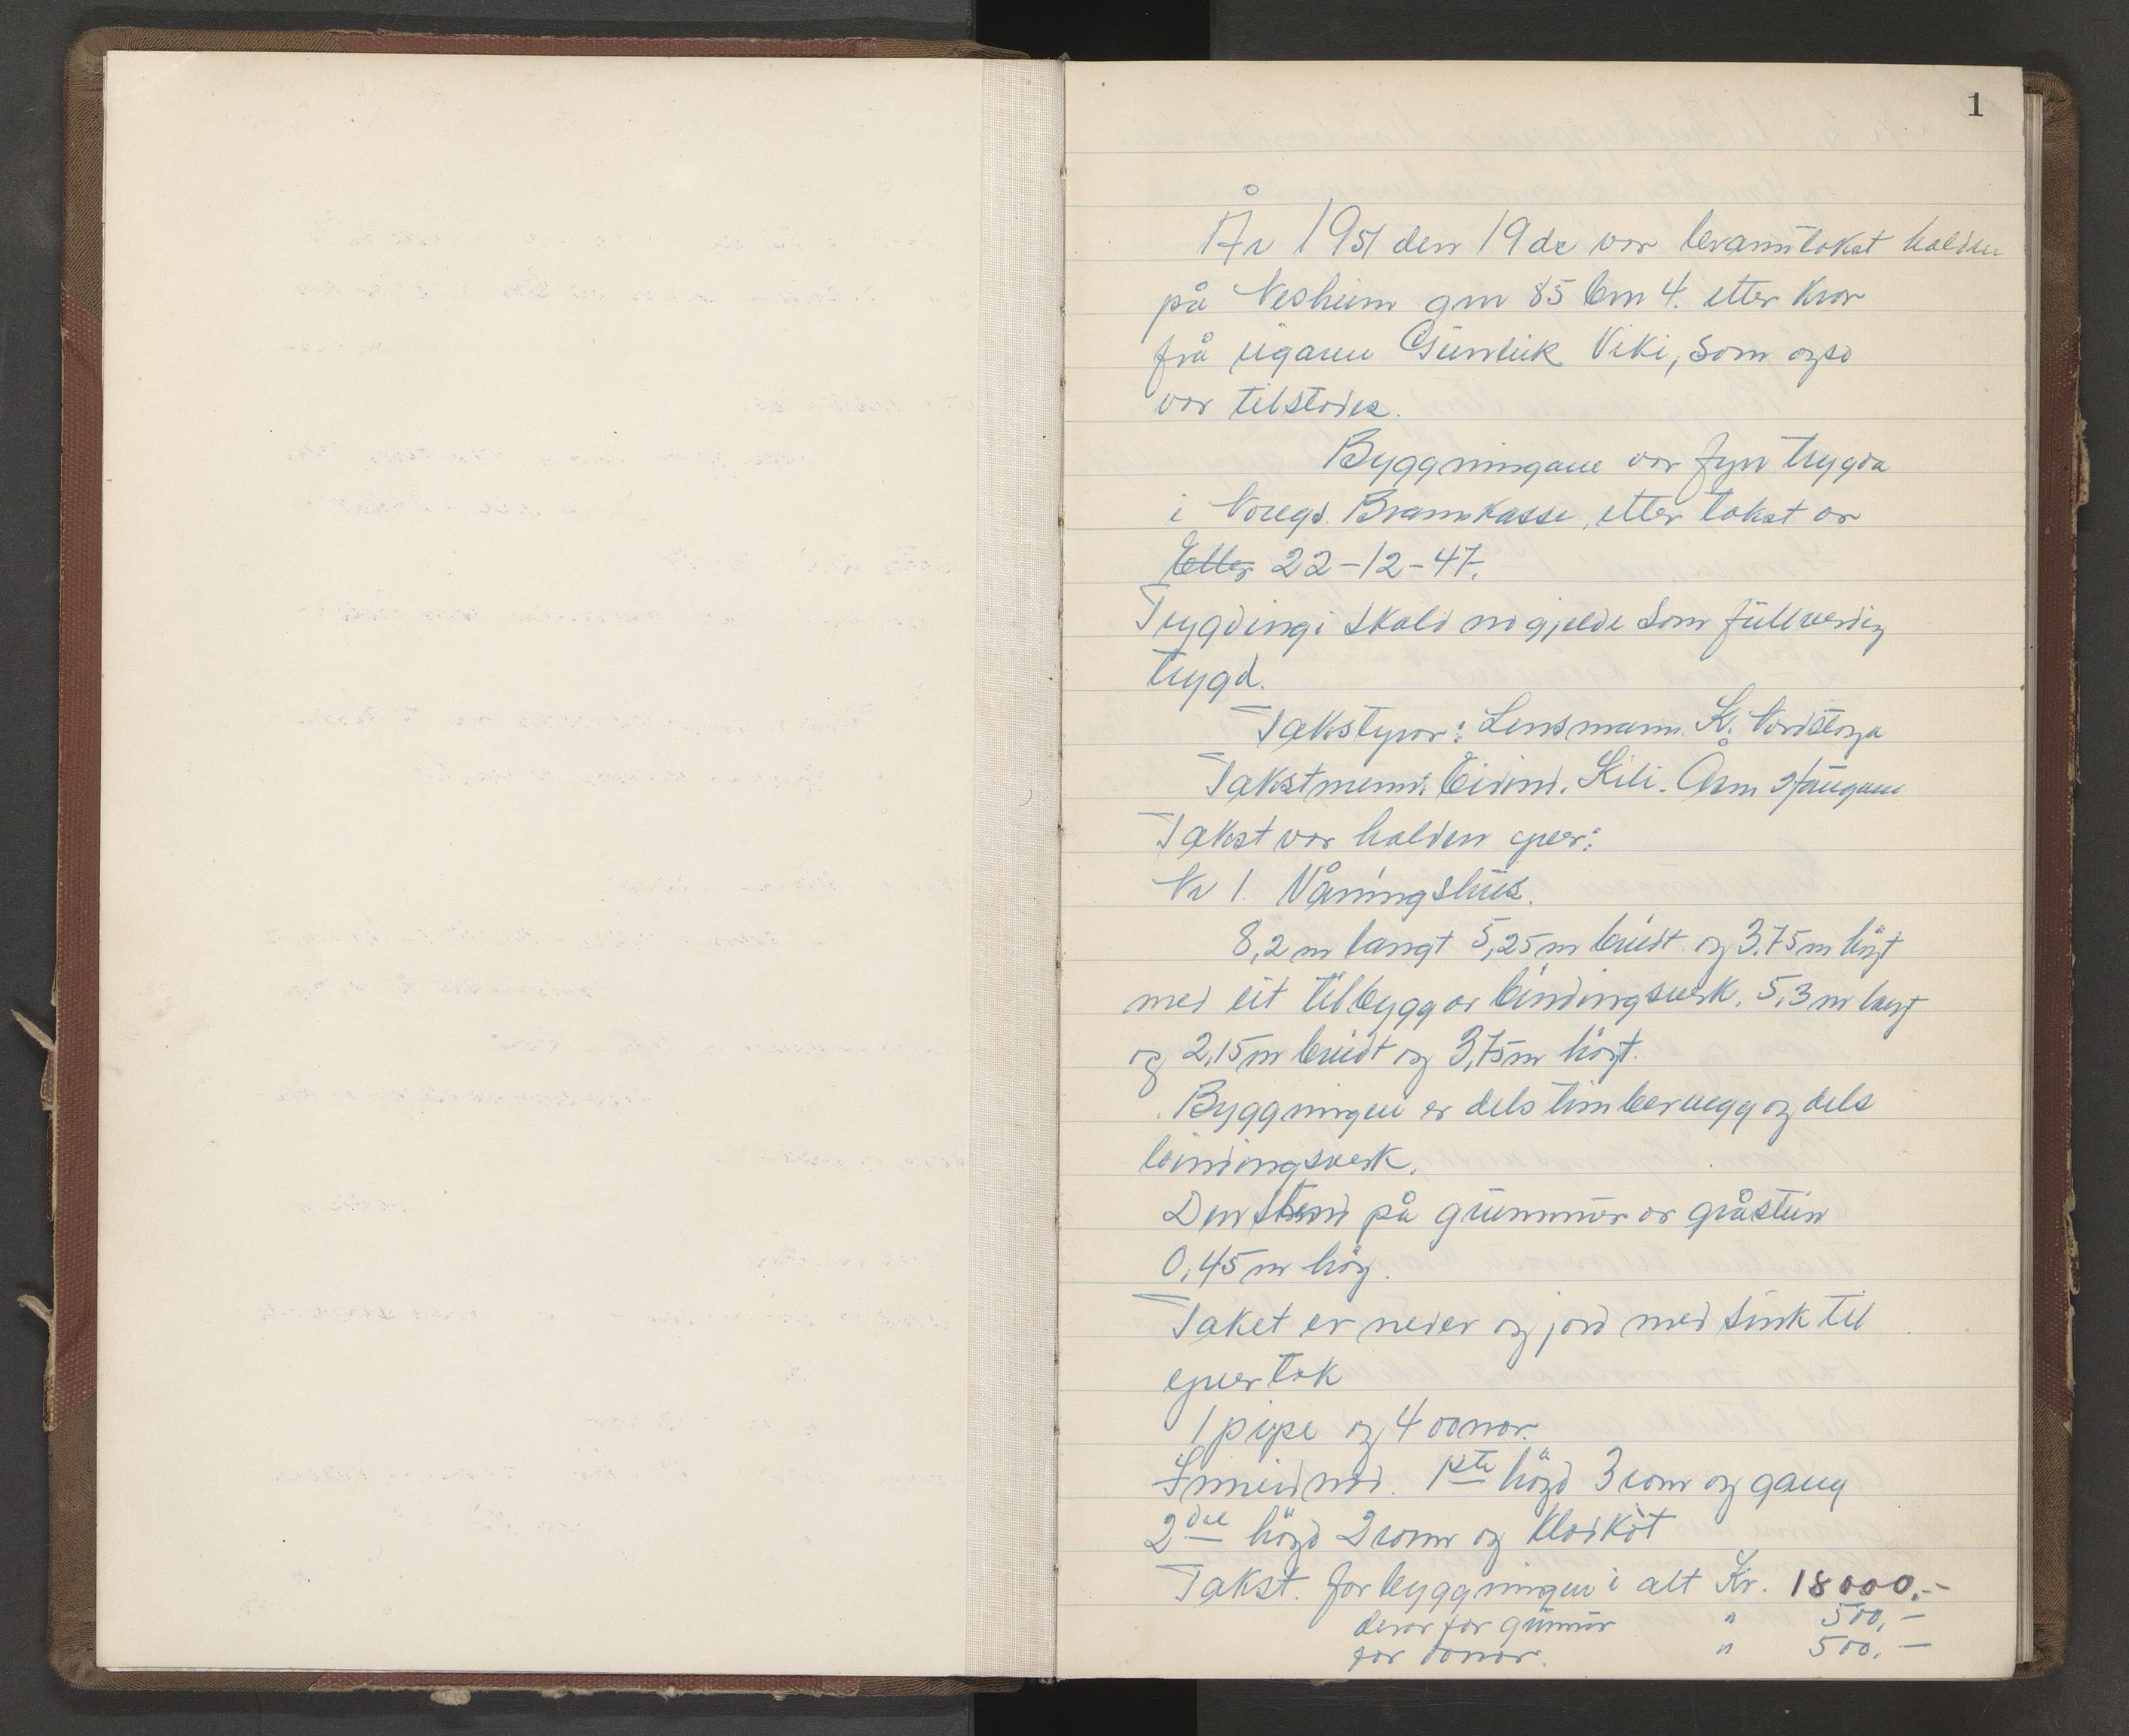 1
År 1951 den 19de var branntakst halden
på Nesheim gnr 85 bnr 4. etter krav
frå eigaren Gunleik Viki, som også
var tilstades.
Byggningane var fyrr trygda
i Noregs. Brannkasse, etter takst av
Etter 22-12-47.
Trygdingi skald no gjelde som fullverdig
trygd.
Takstyrar: Lensmann. K. Nordstoga
Takstmenn: Eivind. Kili. Åsm Haugann
Takst var halden yver:
Nr 1. Våningshus.
8,2 m langt 5,25 m breidt og 3.75 m högt
med eit tilbygg av bindingsverk. 5,3 m langt
og 2,15 m breidt og 3,75 m högt.
Byggningen er dels timbervegg og dels
bindingsverk.
Den stend på grunnmur av gråstein
0,45 m hög.
Taket er never og jord med sink til
yvertak
1 pipe og 4 omnar.
Innreidnad. 1ste högd 3 rom og gang
2dre högd 2 rom og kleskòt
Takst. for byggningen i alt Kr. 18000.-
derav for grunnmur " 500,-
for omnar. " 500.-